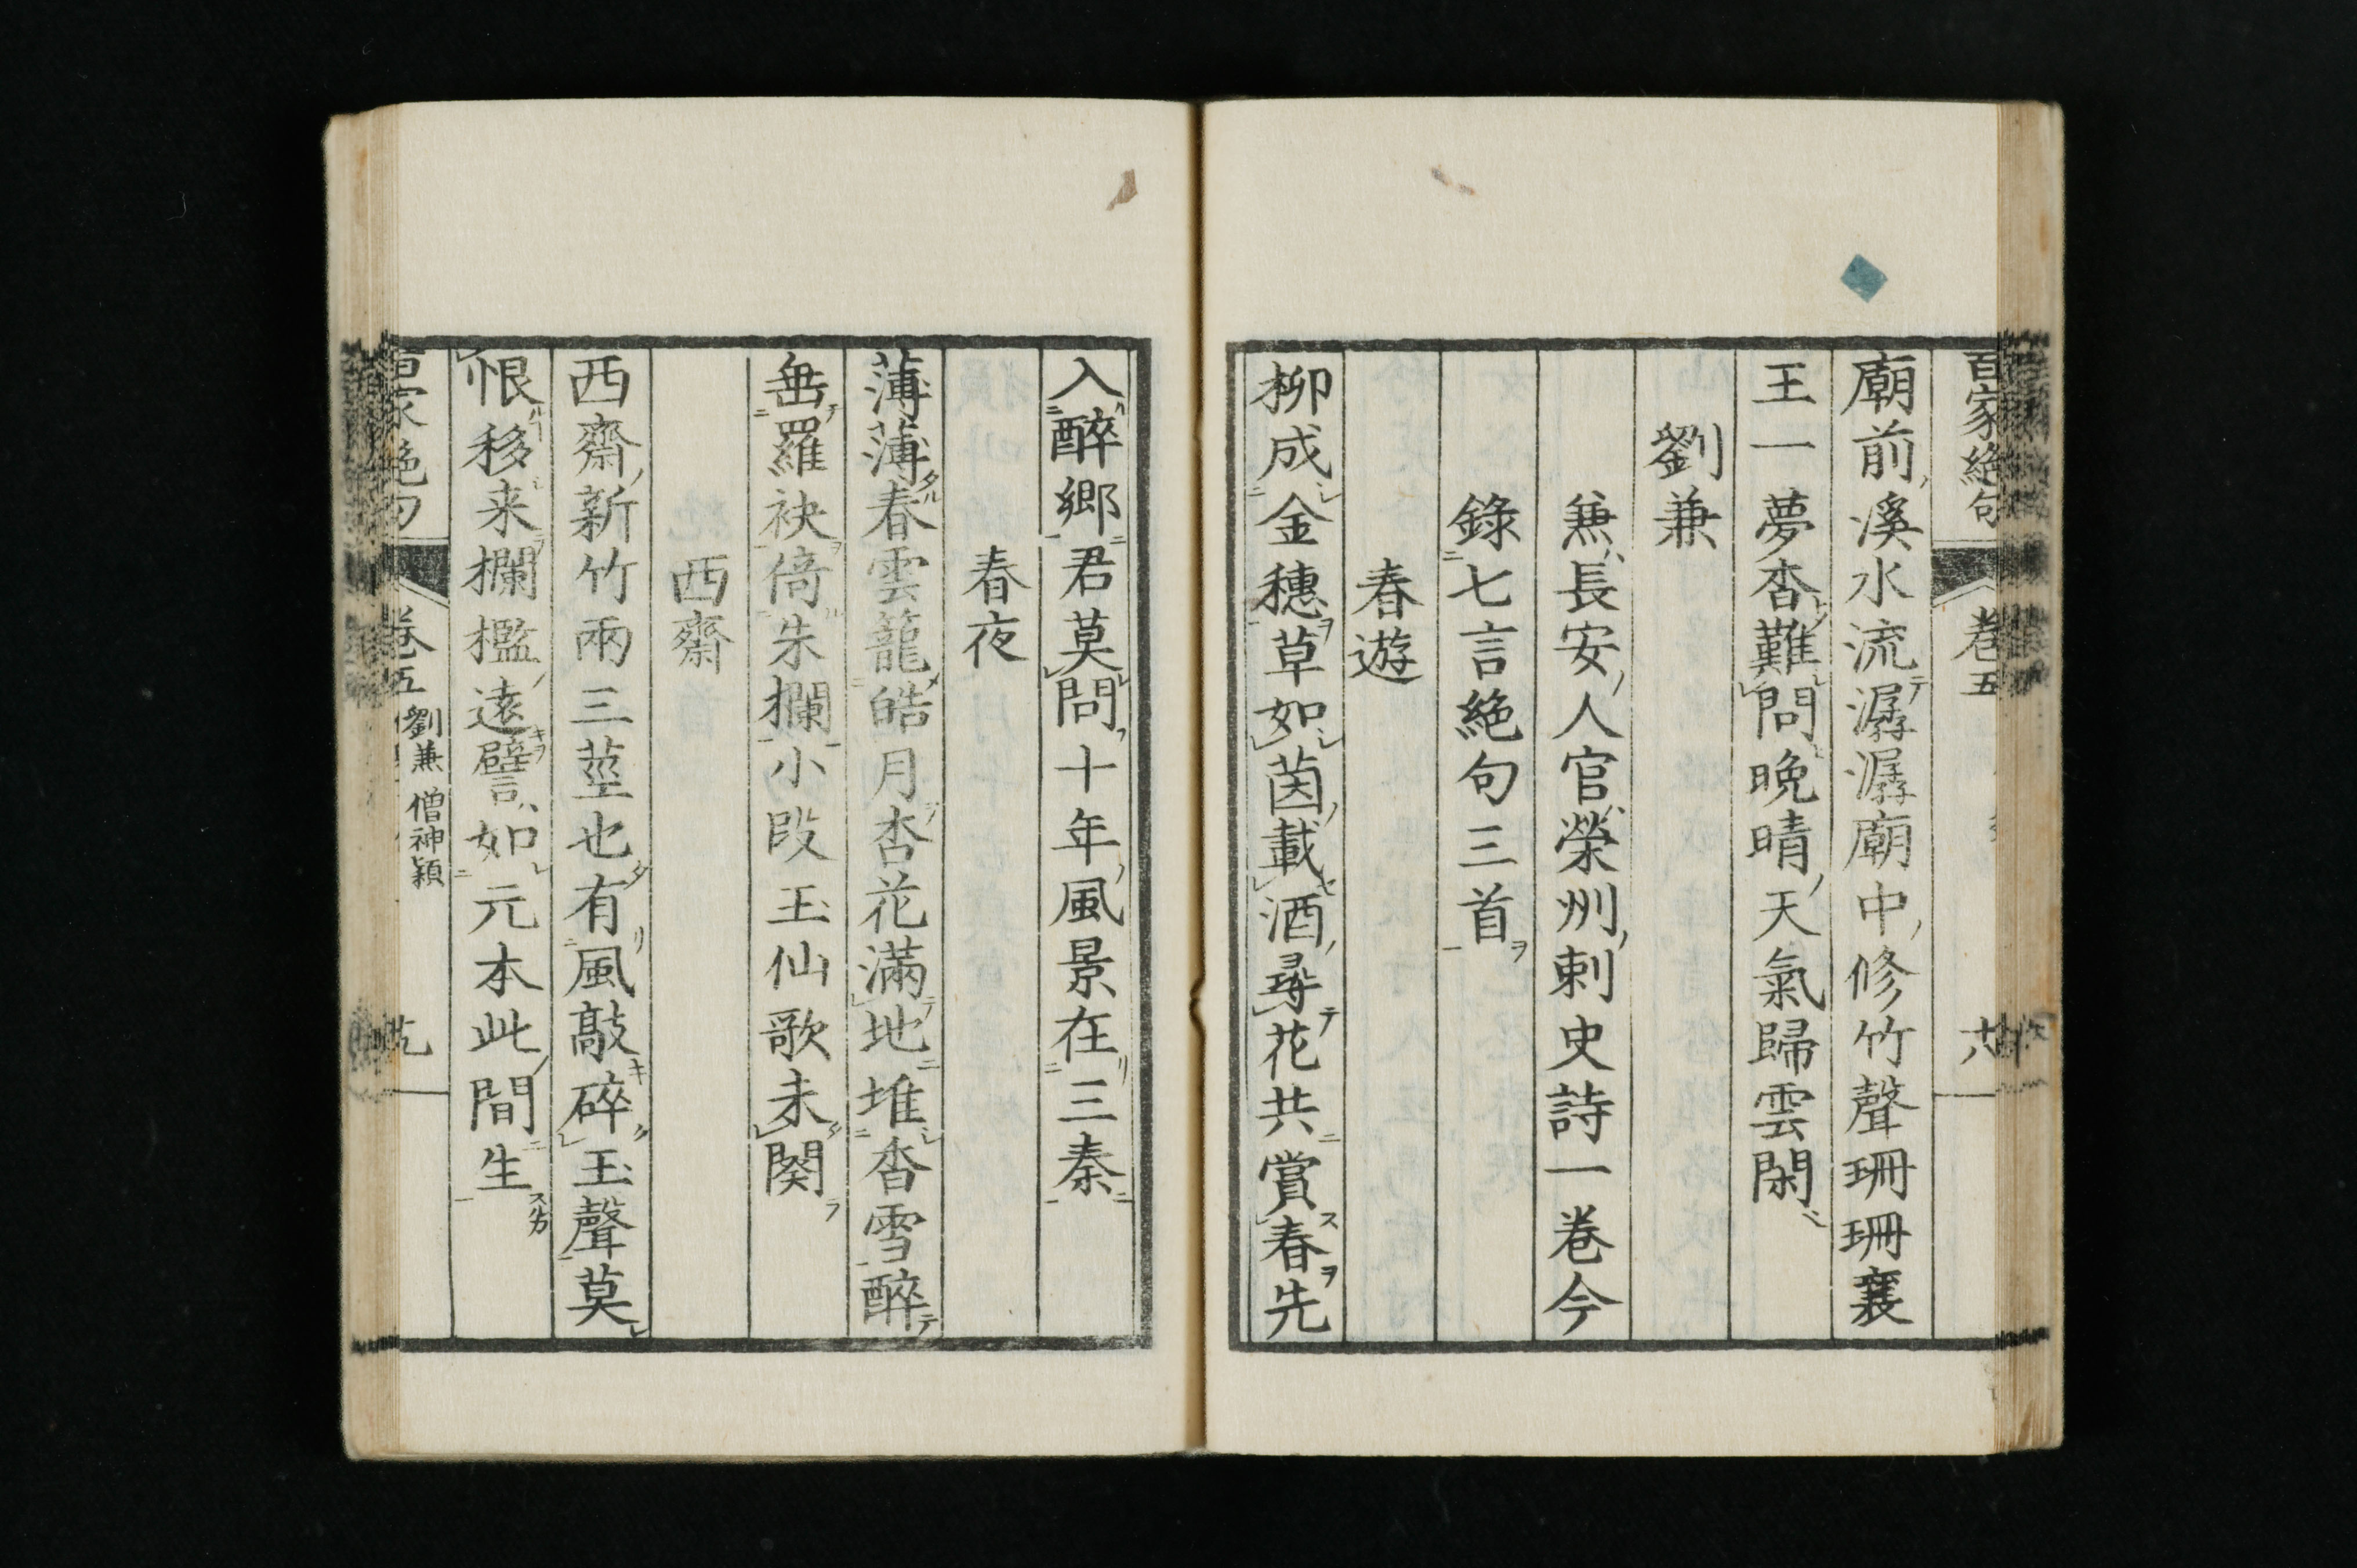 百家絶句 卷五
廟前溪水流潺潺廟中修竹聲珊珊襄
王一夢杳難問晩晴天氣歸雲閑
劉兼
兼長安人官榮州刺史詩一卷今
錄七言絶句三首
春遊
柳成金穗草如茵載酒尋花共賞春先
入醉鄉君莫問十年風景在三秦
春夜
薄薄春雲籠皓月杏花滿地堆香雪醉
垂羅袂倚朱欄小段玉仙歌未闋
西齋
西齋新竹兩三莖也有風敲碎玉聲莫
恨移来欄檻遠譬如元本此間生
卷五 劉兼 僧神穎